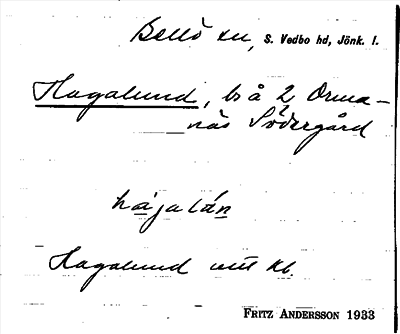 Bellö sn, S. Vedbo hd, Jönk. l.
Hagalund, bs å 2 Orma-
näs Södergård
hagalún
Hagalund enl kb.
FRITZ ANDERSSON 1933